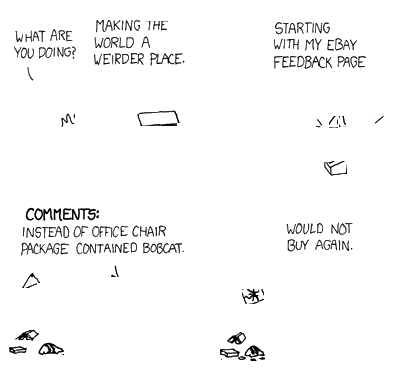 WHAT ARE
YOU DOING?
MAKING THE
WORLD A
WEIRDER PLACE.
STARTING
WITH MY EBAY
FEEDBACK PAGE
COMMENTS:
INSTEAD OF OFFICE CHAIR
PACKAGE CONTAINED BOBCAT.
WOULD NOT
BUY AGAIN.